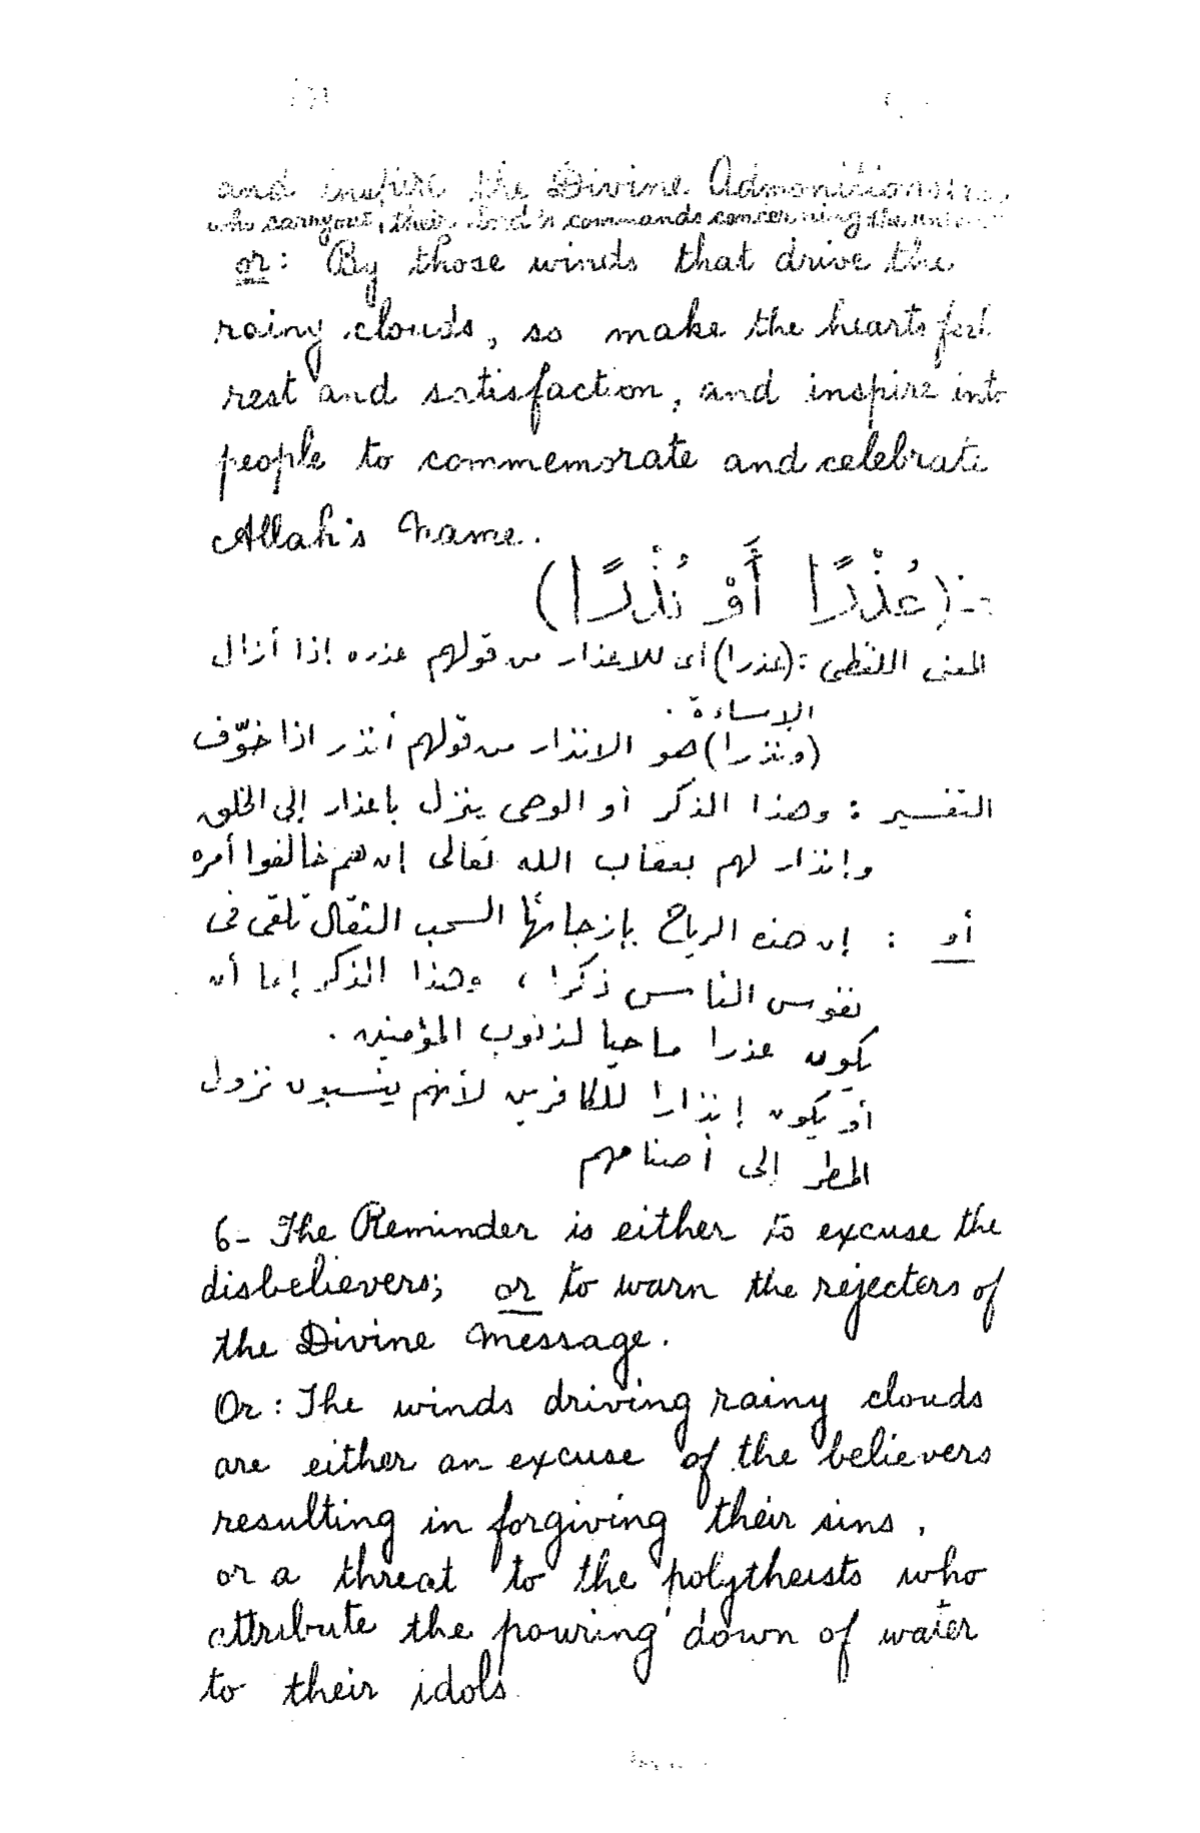 and inspire the Divine Admonitions
who carryout, their Lord's commands concerning the
or: By those winds that drive the
rainy clouds, so make the hearts feel
rest and satisfaction, and inspire into
people to commemorate and celebrate
Allah's Name.
(عُذْرًا أَوْ نُذْرًا)
المعنى اللفظى : (عذرا) أى للاعذار من قولهم عذره إذا أزال
الإساءة .
(ونذرا) هو الانذار من قولهم أنذر اذا خوّف
التفسير : وهذا الذكر أو الوحى ينزل باعذار إلى الخلق
وإنذار لهم بعقاب الله تعالى إن هم خالفوا أمره
أو : إن هذه الرياح بإزجائها السحب الثقال تلقى فى
نفوس الناس ذكرا ، وهذا الذكر إما أن
يكون عذرا ماحيا لذنوب المؤمنين .
أو يكون إنذارا للكافرين لأنهم ينسبون نزول
المطر إلى أصنامهم
6- The Reminder is either to excuse the
disbelievers; or to warn the rejecters of
the Divine Message.
Or: The winds driving rainy clouds
are either an excuse of the believers
resulting in forgiving their sins,
or a threat to the polytheists who
attribute the pouring down of water
to their idols.